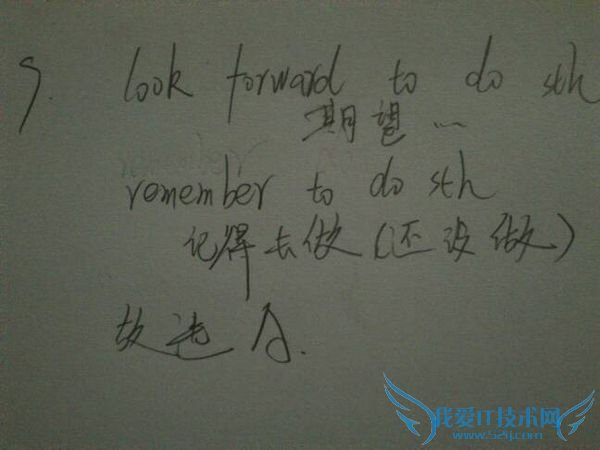 9. look forward to do sth
期望...
remember to do sth
记得去做(还没做)
故选A.
我爱IT技术网
www.52ij.com